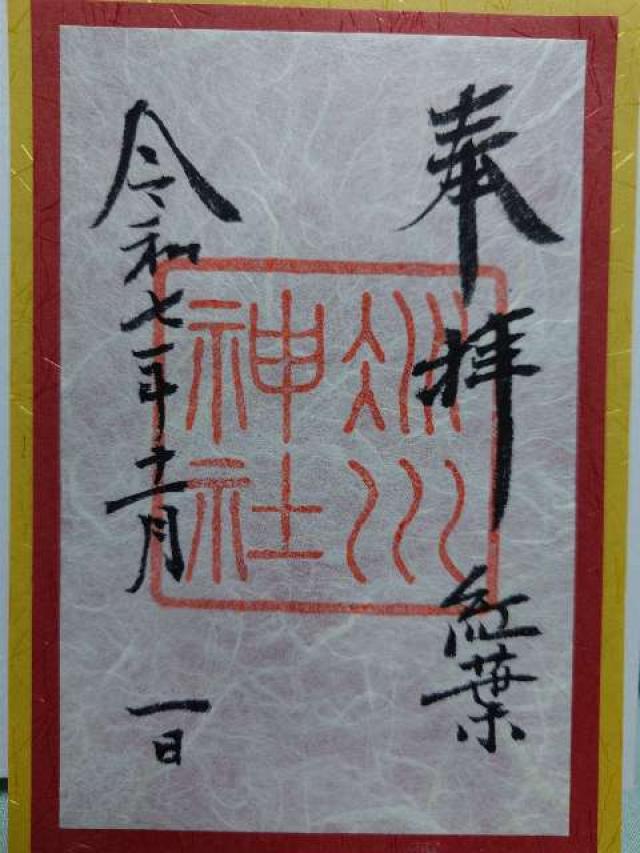 奉拝
紅葉
冰川
神社
令和七年十二月
一日